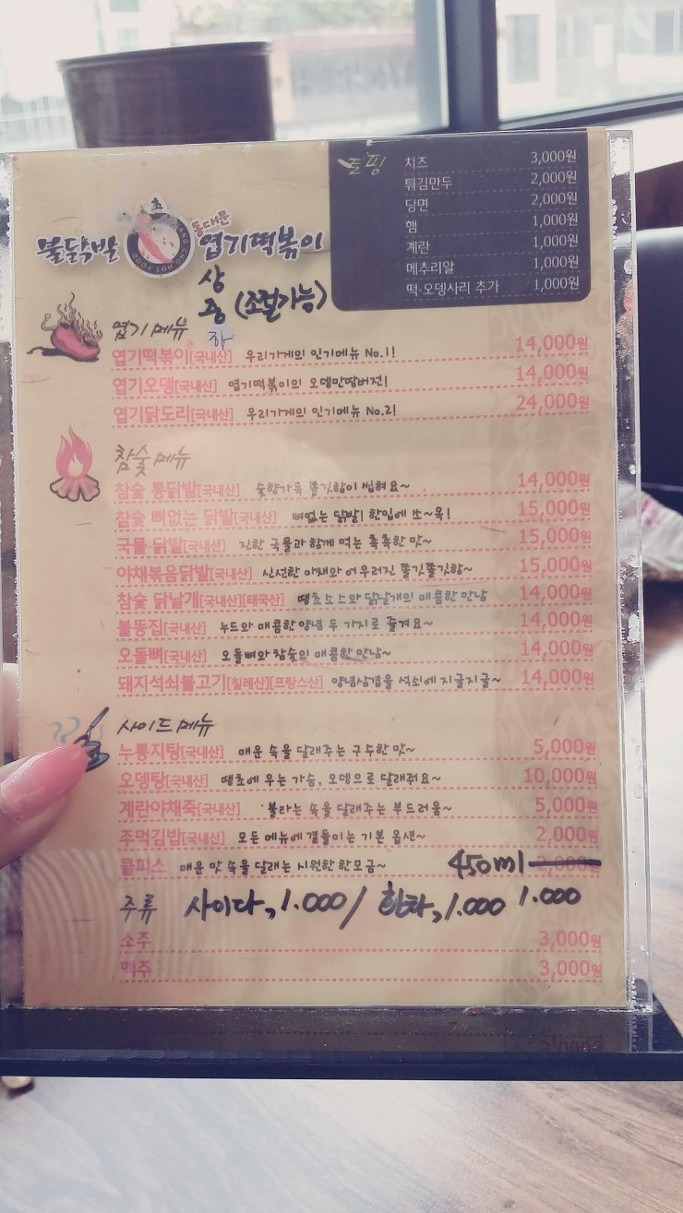 토핑
치즈 3,000원
튀김만두 2,000원
당면 2,000원
햄 1,000원
계란 1,000원
메추리알 1,000원
떡·오뎅사리 추가 1,000원
불닭발 동대문 엽기떡볶이
상
중 (조절가능)
하
엽기 메뉴
엽기떡볶이[국내산] 우리가게의 인기메뉴 No.1! 14,000원
엽기오뎅[국내산] 엽기떡볶이의 오뎅만땅버전! 14,000원
엽기닭도리[국내산] 우리가게의 인기메뉴 No.2! 24,000원
참숯 메뉴
참숯 통닭발[국내산] 숯향가득 쫄깃함이 씹혀요~ 14,000원
참숯 뼈없는 닭발[국내산] 뼈없는 닭발! 한입에 쏘~옥! 15,000원
국물 닭발[국내산] 진한 국물과 함께 먹는 촉촉한 맛~ 15,000원
야채볶음닭발[국내산] 신선한 야채와 어우러진 쫄깃쫄깃함~ 15,000원
참숯 닭날개[국내산][태국산] 땡초소스와 닭날개의 매콤한 만남 14,000원
불똥집[국내산] 누드와 매콤한 양념 두 가지로 즐겨요~ 14,000원
오돌뼈[국내산] 오돌뼈와 참숯의 매콤한 만남~ 14,000원
돼지석쇠불고기[칠레산][프랑스산] 양념삼겹을 석쇠에 지글지글~ 14,000원
사이드 메뉴
누룽지탕[국내산] 매운 속을 달래주는 구수한 맛~ 5,000원
오뎅탕[국내산] 땡초에 우는 가슴, 오뎅으로 달래줘요~ 10,000원
계란야채죽[국내산] 불타는 속을 달래주는 부드러움~ 5,000원
주먹김밥[국내산] 모든 메뉴에 곁들이는 기본 옵션~ 2,000원
쿨피스 매운 맛 속을 달래는 시원한 한모금~ 450ml 2,000원
주류 사이다,1.000/ 환타,1.000 1.000
소주 3,000원
맥주 3,000원